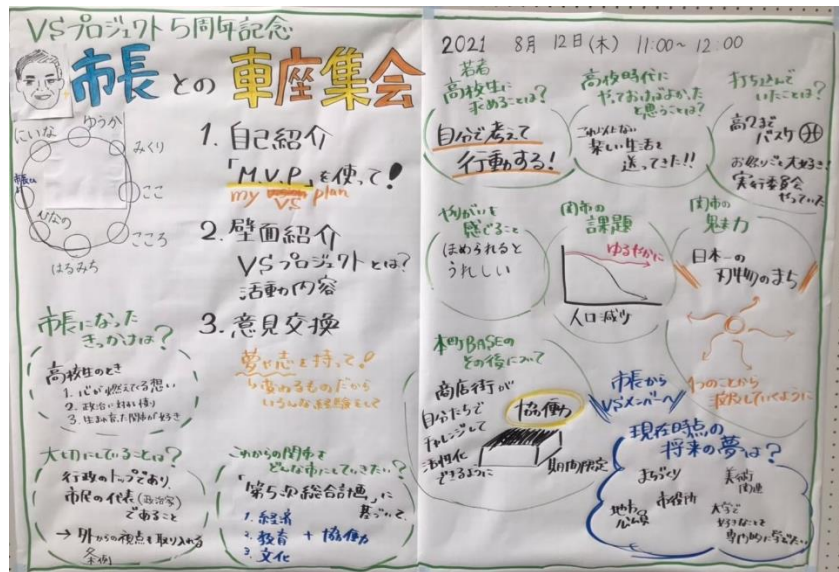 VSプロジェクト5周年記念
市長との車座集会
にいな
ゆうか
みくり
ここ
こころ
はるみち
ひなの
1. 自己紹介
「M.V.P」を使って!
my VS plan
2. 壁面紹介
VSプロジェクトとは?
活動内容
3. 意見交換
夢や志を持って!
変わるものだから
いろんな経験をして
市長になった
きっかけは?
高校生のとき
1. 心が燃えてる想い
2. 政治に対する憤り
3. 生まれ育った関市が好き
大切にしていることは?
行政のトップであり
市民の代表(政治家)
であること
→ 外からの視点も取り入れる
条例
これからの関市を
どんな市にしていきたい?
「第5次総合計画」に
基づいて
1. 経済
2. 教育 + 協働力
3. 文化
2021 8月 12日(木) 11:00~12:00
若者
高校生に
求めることは?
自分で考えて
行動する!
高校時代に
やっておけばよかった
と思うことは?
これ以上ない
楽しい生活を
送ってきた!!
打ち込んで
いたことは?
高2まで
バスケ
お祭りごと大好き!
実行委員会
やっていた
やりがいを
感じること
ほめられると
うれしい
関市の
課題
ゆるやかに
人口減少
関市の
魅力
日本一の
刃物のまち
1つのことから
波及していくように
本町BASEの
その後について
商店街が
自分たちで
チャレンジして
活性化
できるように
協働力
期間限定
市長から
VSメンバーへ
現在時点の
将来の夢は?
まちづくり
市役所
地方公務員
美術
関連
大学で
好きなことを
専門的に学びたい